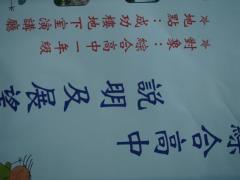 綜合高中
說明及展望
★對象：綜合高中一年級
★地點：成功樓地下室演講廳